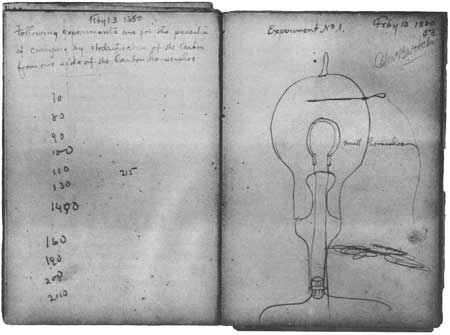 Feby 13 1880
Following experiments are for the
of carrying by electrification of the Carbon
from one side of the Carbon
70
80
90
100
110 215
130
160
190
200
Experiment No. 1. Feby 13 1880
Chas Batchelor
small horseshoe